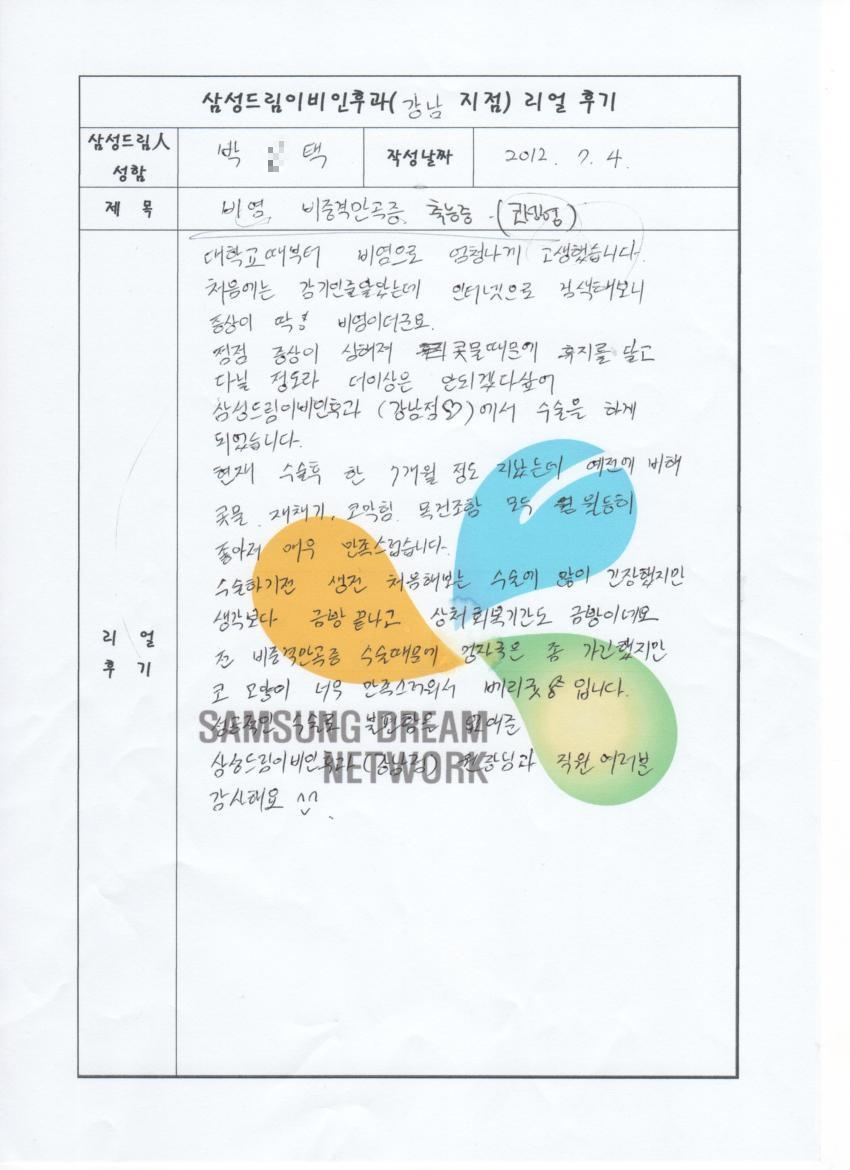 삼성드림이비인후과(강남 지점) 리얼 후기
삼성드림人 성함
박 택
작성날짜
2012. 7. 4.
제 목
비염, 비중격만곡증, 축농증 -( )
리 얼 후 기
대학교때부터 비염으로 엄청나게 고생했습니다.
처음에는 감기인줄알았는데 인터넷으로 검색해보니
증상이 딱! 비염이더군요.
점점 증상이 심해져 콧물때문에 휴지를 달고
다닐 정도라 더이상은 안되겠다싶어
삼성드림이비인후과 (강남점♡)에서 수술을 하게
되었습니다.
현재 수술후 한 7개월 정도 지났는데 예전에 비해
콧물, 재채기, 코막힘, 목건조함 모두 월등히
좋아져 매우 만족스럽습니다.
수술하기전 생전 처음해보는 수술에 많이 긴장했지만
생각보다 금방 끝나고 상처회복기간도 금방이네요
전 비중격만곡증 수술때문에 좀 가긴했지만
코 모양이 너무 만족스러워서 베리굿 입니다.
성공적인 수술로 불편함을 없애준
삼성드림이비인후과 (강남점) 원장님과 직원 여러분
감사해요 ^^.
SAMSUNG DREAM
NETWORK